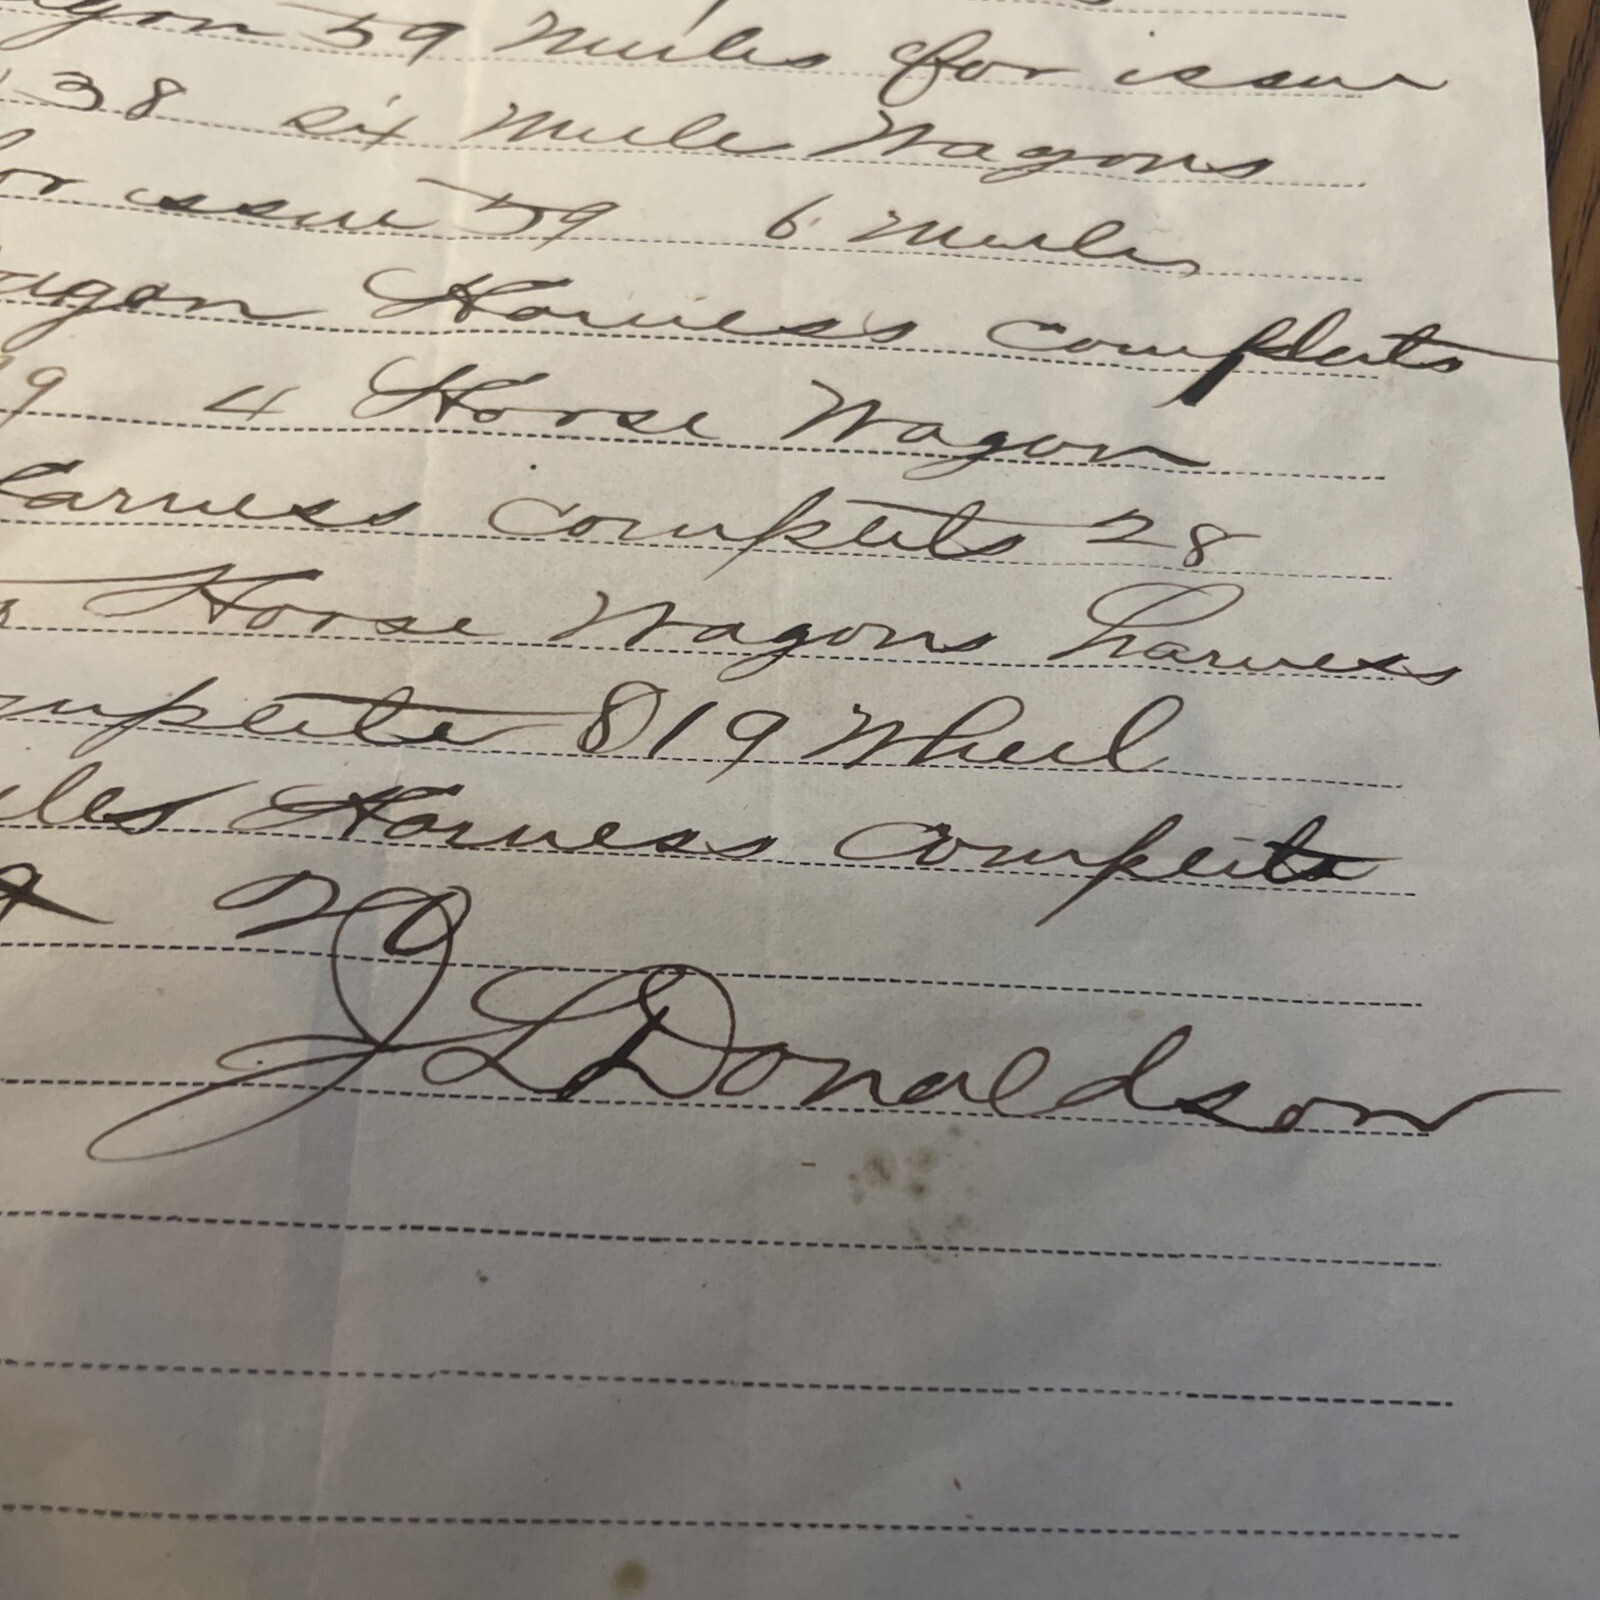 59 Mules for issue
38 six Mule Wagons
for issue 59 6 Mules
Wagon Harness compleits
4 Horse Wagon
Harness compeits 28
Horse Wagons harness
compeite 819 Wheel
Harness compeits
20
J L Donaldson